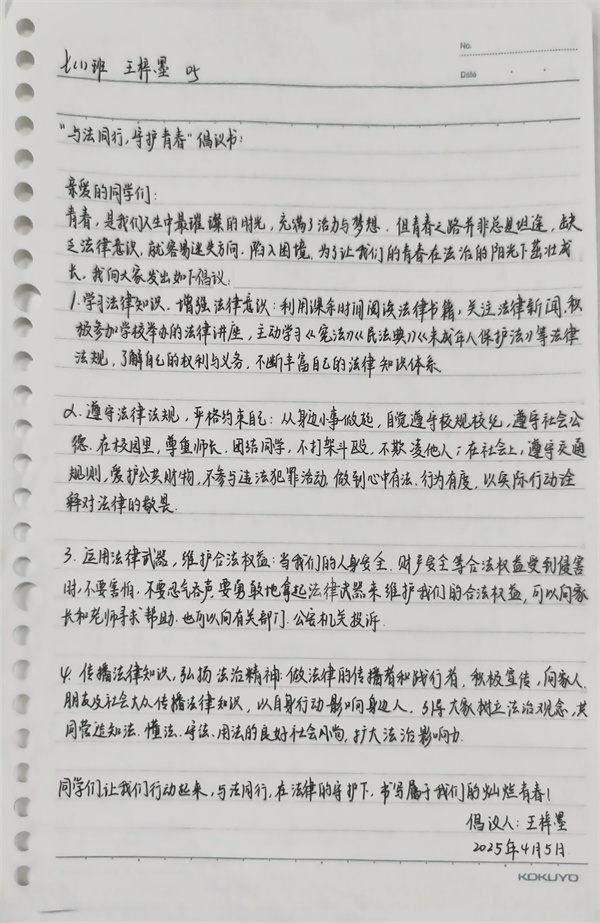 No.
七(1)班 王梓墨 05
Date
“与法同行，守护青春”倡议书：
亲爱的同学们：
青春，是我们人生中最璀璨的时光，充满了活力与梦想．但青春之路并非总是坦途，缺
乏法律意识，就容易迷失方向．陷入困境．为了让我们的青春在法治的阳光下茁壮成
长．我向大家发出如下倡议：
1.学习法律知识．增强法律意识：利用课余时间阅读法律书籍，关注法律新闻．积
极参加学校举办的法律讲座，主动学习《宪法》《民法典》《未成年人保护法》等法律
法规，了解自己的权利与义务，不断丰富自己的法律知识体系．
2．遵守法律法规，严格约束自己：从身边小事做起，自觉遵守校规校纪，遵守社会公
德．在校园里，尊重师长．团结同学，不打架斗殴，不欺凌他人；在社会上，遵守交通
规则，爱护公共财物，不参与违法犯罪活动．做到心中有法．行为有度，以实际行动诠
释对法律的敬畏．
3．运用法律武器，维护合法权益：当我们的人身安全．财产安全等合法权益受到侵害
时，不要害怕．不要忍气吞声．要勇敢地拿起法律武器来维护我们的合法权益，可以向家
长和老师寻求帮助．也可以向有关部门．公安机关投诉．
4．传播法律知识，弘扬法治精神：做法律的传播者和践行者．积极宣传，向家人．
朋友及社会大众传播法律知识，以自身行动影响身边人．引导大家树立法治观念，共
同营造知法．懂法．守法．用法的良好社会风尚，扩大法治影响力．
同学们，让我们行动起来，与法同行，在法律的守护下．书写属于我们的灿烂青春！
倡议人：王梓墨
2025年4月5日．
KOKUYO